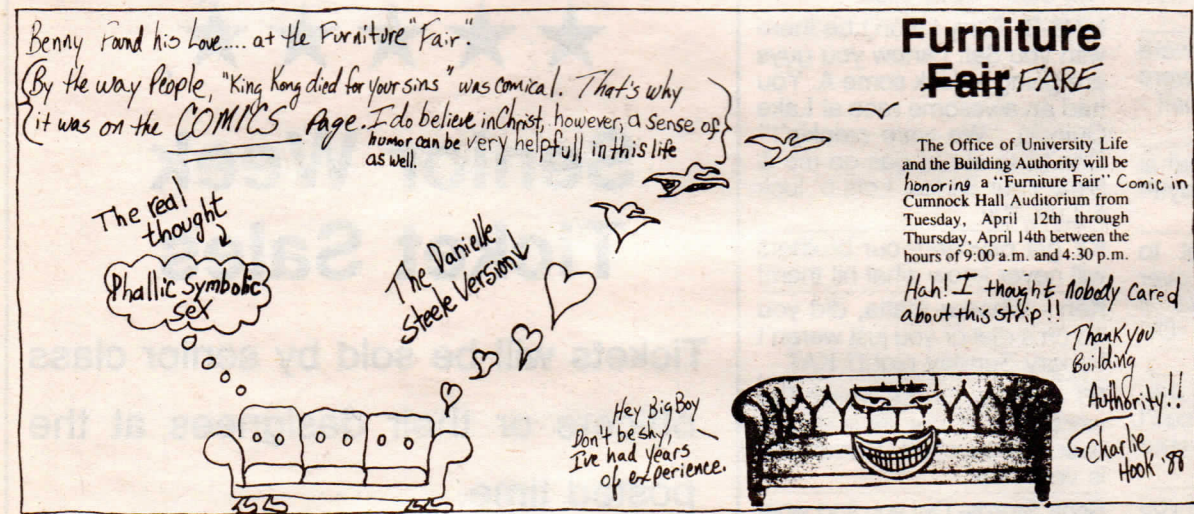 Benny Found his Love.... at the Furniture "Fair".
By the way People, "King Kong died for your sins" was comical. That's why
it was on the COMICS Page. I do believe in Christ, however, a sense of
humor can be very helpfull in this life
as well.
The real
thought
Phallic Symbolic
Sex
The Danielle
Steele Version
Hey Big Boy
Don't be shy,
I've had years
of experience.
Furniture
Fair FARE
The Office of University Life
and the Building Authority will be
honoring a "Furniture Fair" Comic in
Cumnock Hall Auditorium from
Tuesday, April 12th through
Thursday, April 14th between the
hours of 9:00 a.m. and 4:30 p.m.
Hah! I thought Nobody Cared
about this strip!!
Thank you
Building
Authority!!
Charlie
Hook '88